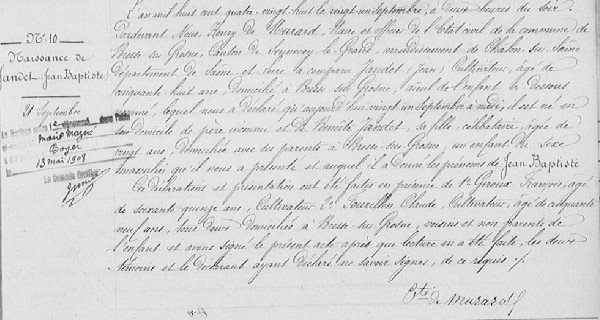 N° 10
Naissance de
Jandet Jean Baptiste
21 Septembre
Marié
Boyer
13 Mai 1908
L'an mil huit cent quatre vingt huit le vingt un Septembre, à deux heures du Soir
Pardevant Nous, Henry de Murard, Maire et officier de l'Etat civil de la commune
de Bresse sur Grosne, Canton de Sennecey le Grand, arrondissement de Chalon sur Saône
Département de Saône et Loire a comparu Jandet (Jean) Cultivateur, âgé de
cinquante huit ans, domicilié à Bresse sur Grosne, aïeul de l'enfant ci Dessous
nommé, lequel nous a déclaré qu'aujourd'hui vingt un Septembre à midi, il est né en
son domicile de père inconnu et de Benoîte Jandet, sa fille, célibataire, âgée de
vingt ans, domiciliée avec ses parents à Bresse sur Grosne, un enfant du Sexe
masculin qu'il nous a présenté et auquel il a donné les prénoms de Jean Baptiste
Ces déclarations et présentation ont été faites en présence de 1° Giroux François, âgé
de soixante quinze ans, Cultivateur 2° Claude, Cultivateur, âgé de cinquante
neuf ans, tous deux domiciliés à Bresse sur Grosne, voisins et non parents de
l'enfant et avons signé le présent acte après que lecture en a été faite, les deux
témoins et le déclarant ayant déclaré ne savoir signer, de ce requis /.
Cte de Murard